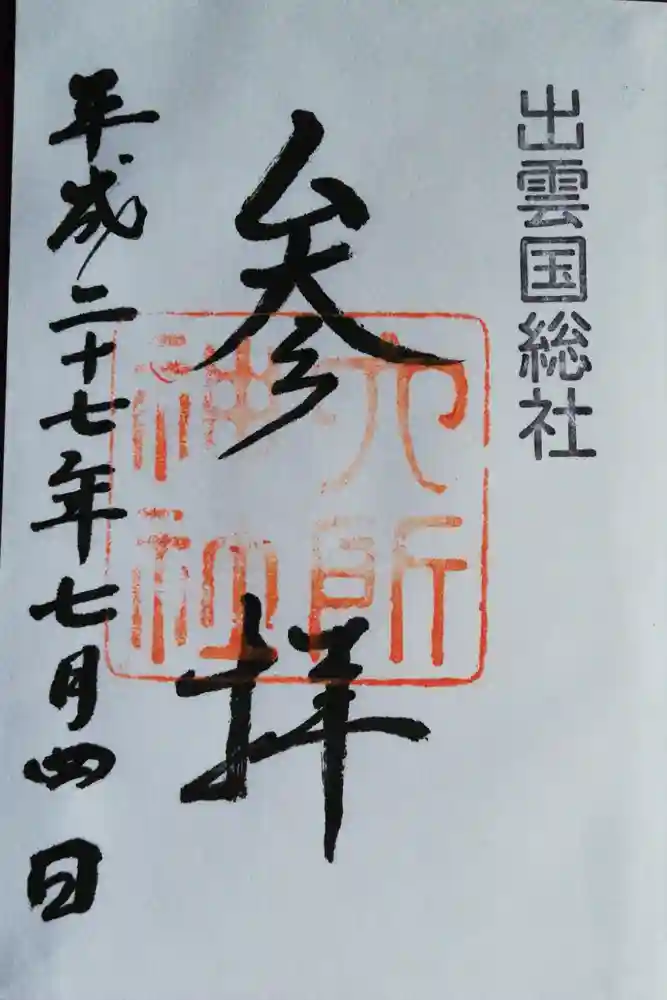 出雲国総社
参拝
六所
神社
平成二十七年七月四日